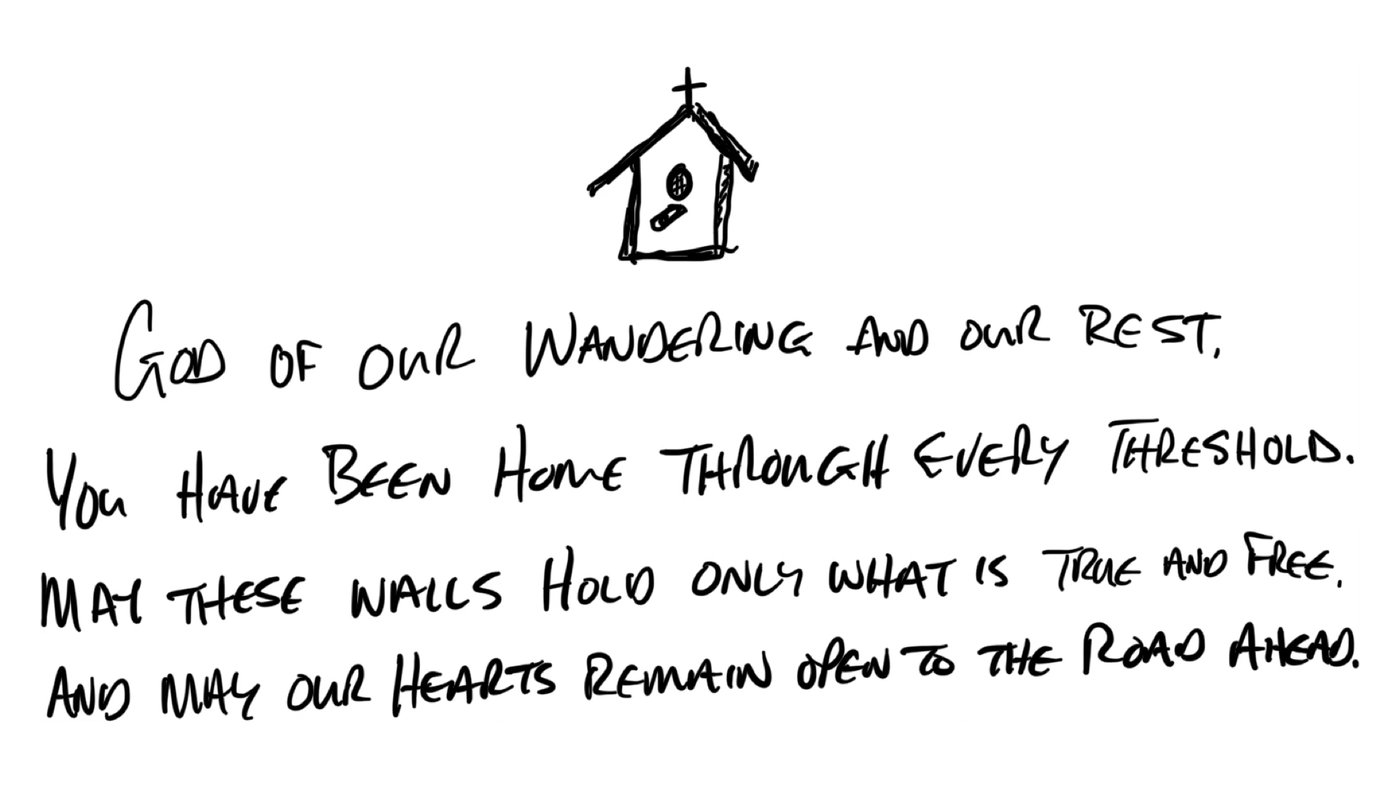 God of our Wandering and our rest,
You Have Been Home Through Every Threshold.
May these walls Hold only what is true and Free.
And may our Hearts Remain open to the Road Ahead.